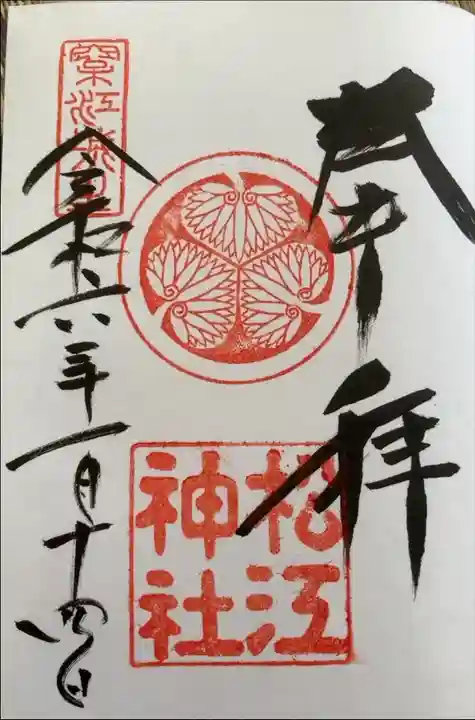 奉拝
松江
神社
令和六年一月十四日